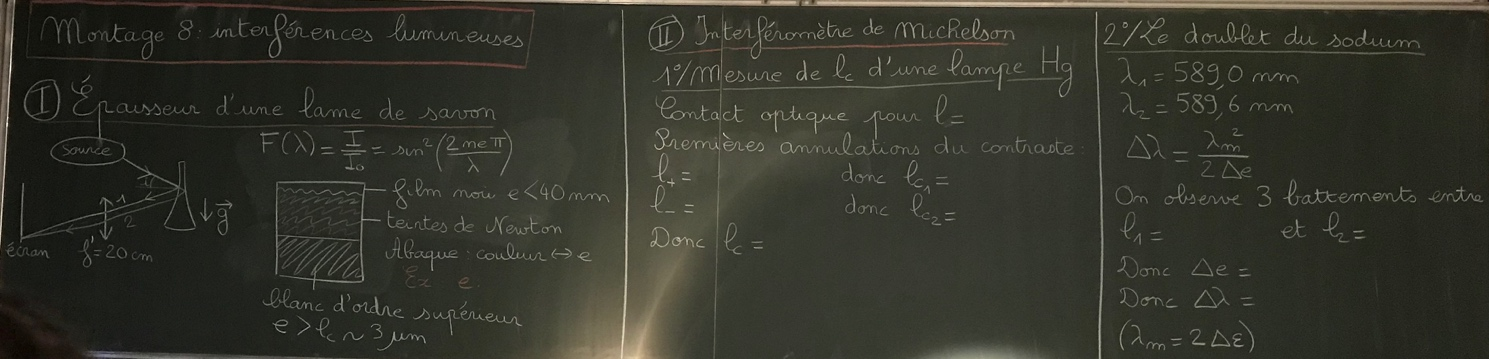 Montage 8: interférences lumineuses
I Épaisseur d'une lame de savon
Source
F(λ) = I/I₀ = sin²(2neπ/λ)
1
2
g⃗
écran
f' = 20 cm
film noir e < 40 nm
teintes de Newton
Abaque : couleur ↔ e
Ex e:
blanc d'ordre supérieur
e > lc ~ 3 µm
II Interféromètre de Michelson
1°/ Mesure de lc d'une lampe Hg
Contact optique pour l =
Premières annulations du contraste :
l₊ = donc lc₁ =
l₋ = donc lc₂ =
Donc lc =
2°/ Le doublet du sodium
λ₁ = 589,0 nm
λ₂ = 589,6 nm
Δλ = λm²/2Δe
On observe 3 battements entre
l₁ = et l₂ =
Donc Δe =
Donc Δλ =
(λm = 2Δε)